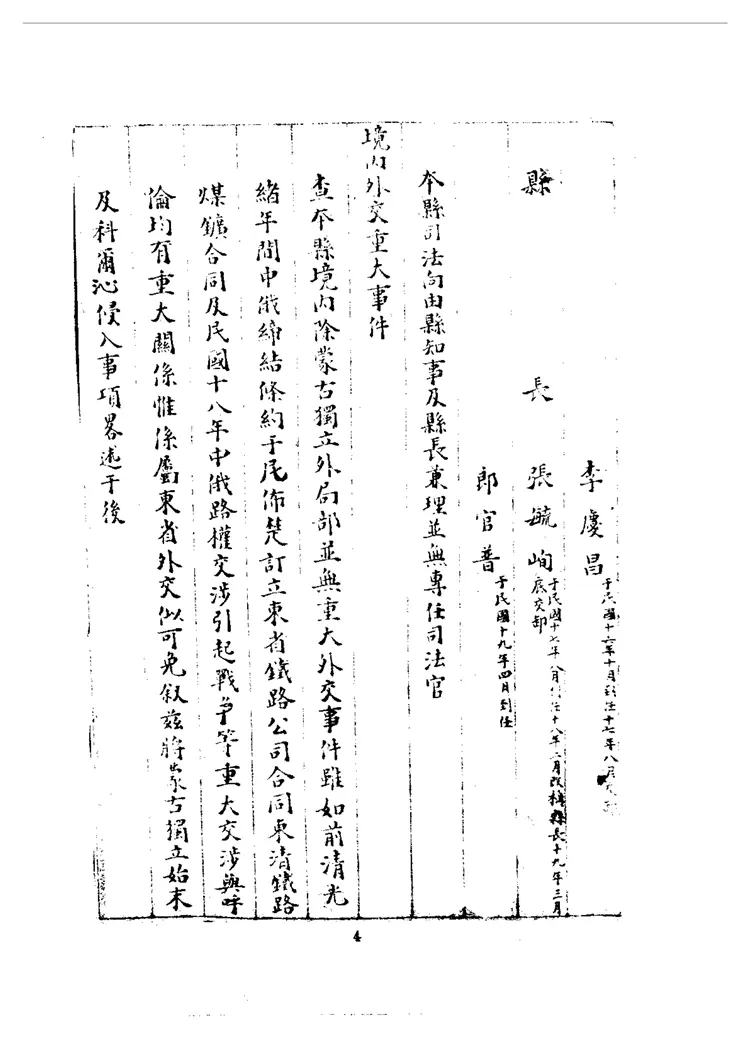 李慶昌 于民國十六年十月到任十七年八月交卸
縣長 張毓峋 于民國十七年八月到任十八年二月改稱縣長十九年三月底交卸
郎官普 于民國十九年四月到任
本縣司法向由縣知事及縣長兼理並無專任司法官
境內外交重大事件
查本縣境內除蒙古獨立外局部並無重大外交事件雖如前清光
緒年間中俄締結條約于尾佈楚訂立東省鐵路公司合同東清鐵路
煤鑛合同及民國十八年中俄路權交涉引起戰争等重大交涉與呼
倫均有重大關係惟係屬東省外交似可免叙茲將蒙古獨立始末
及科爾沁侵入事項畧述于後
4